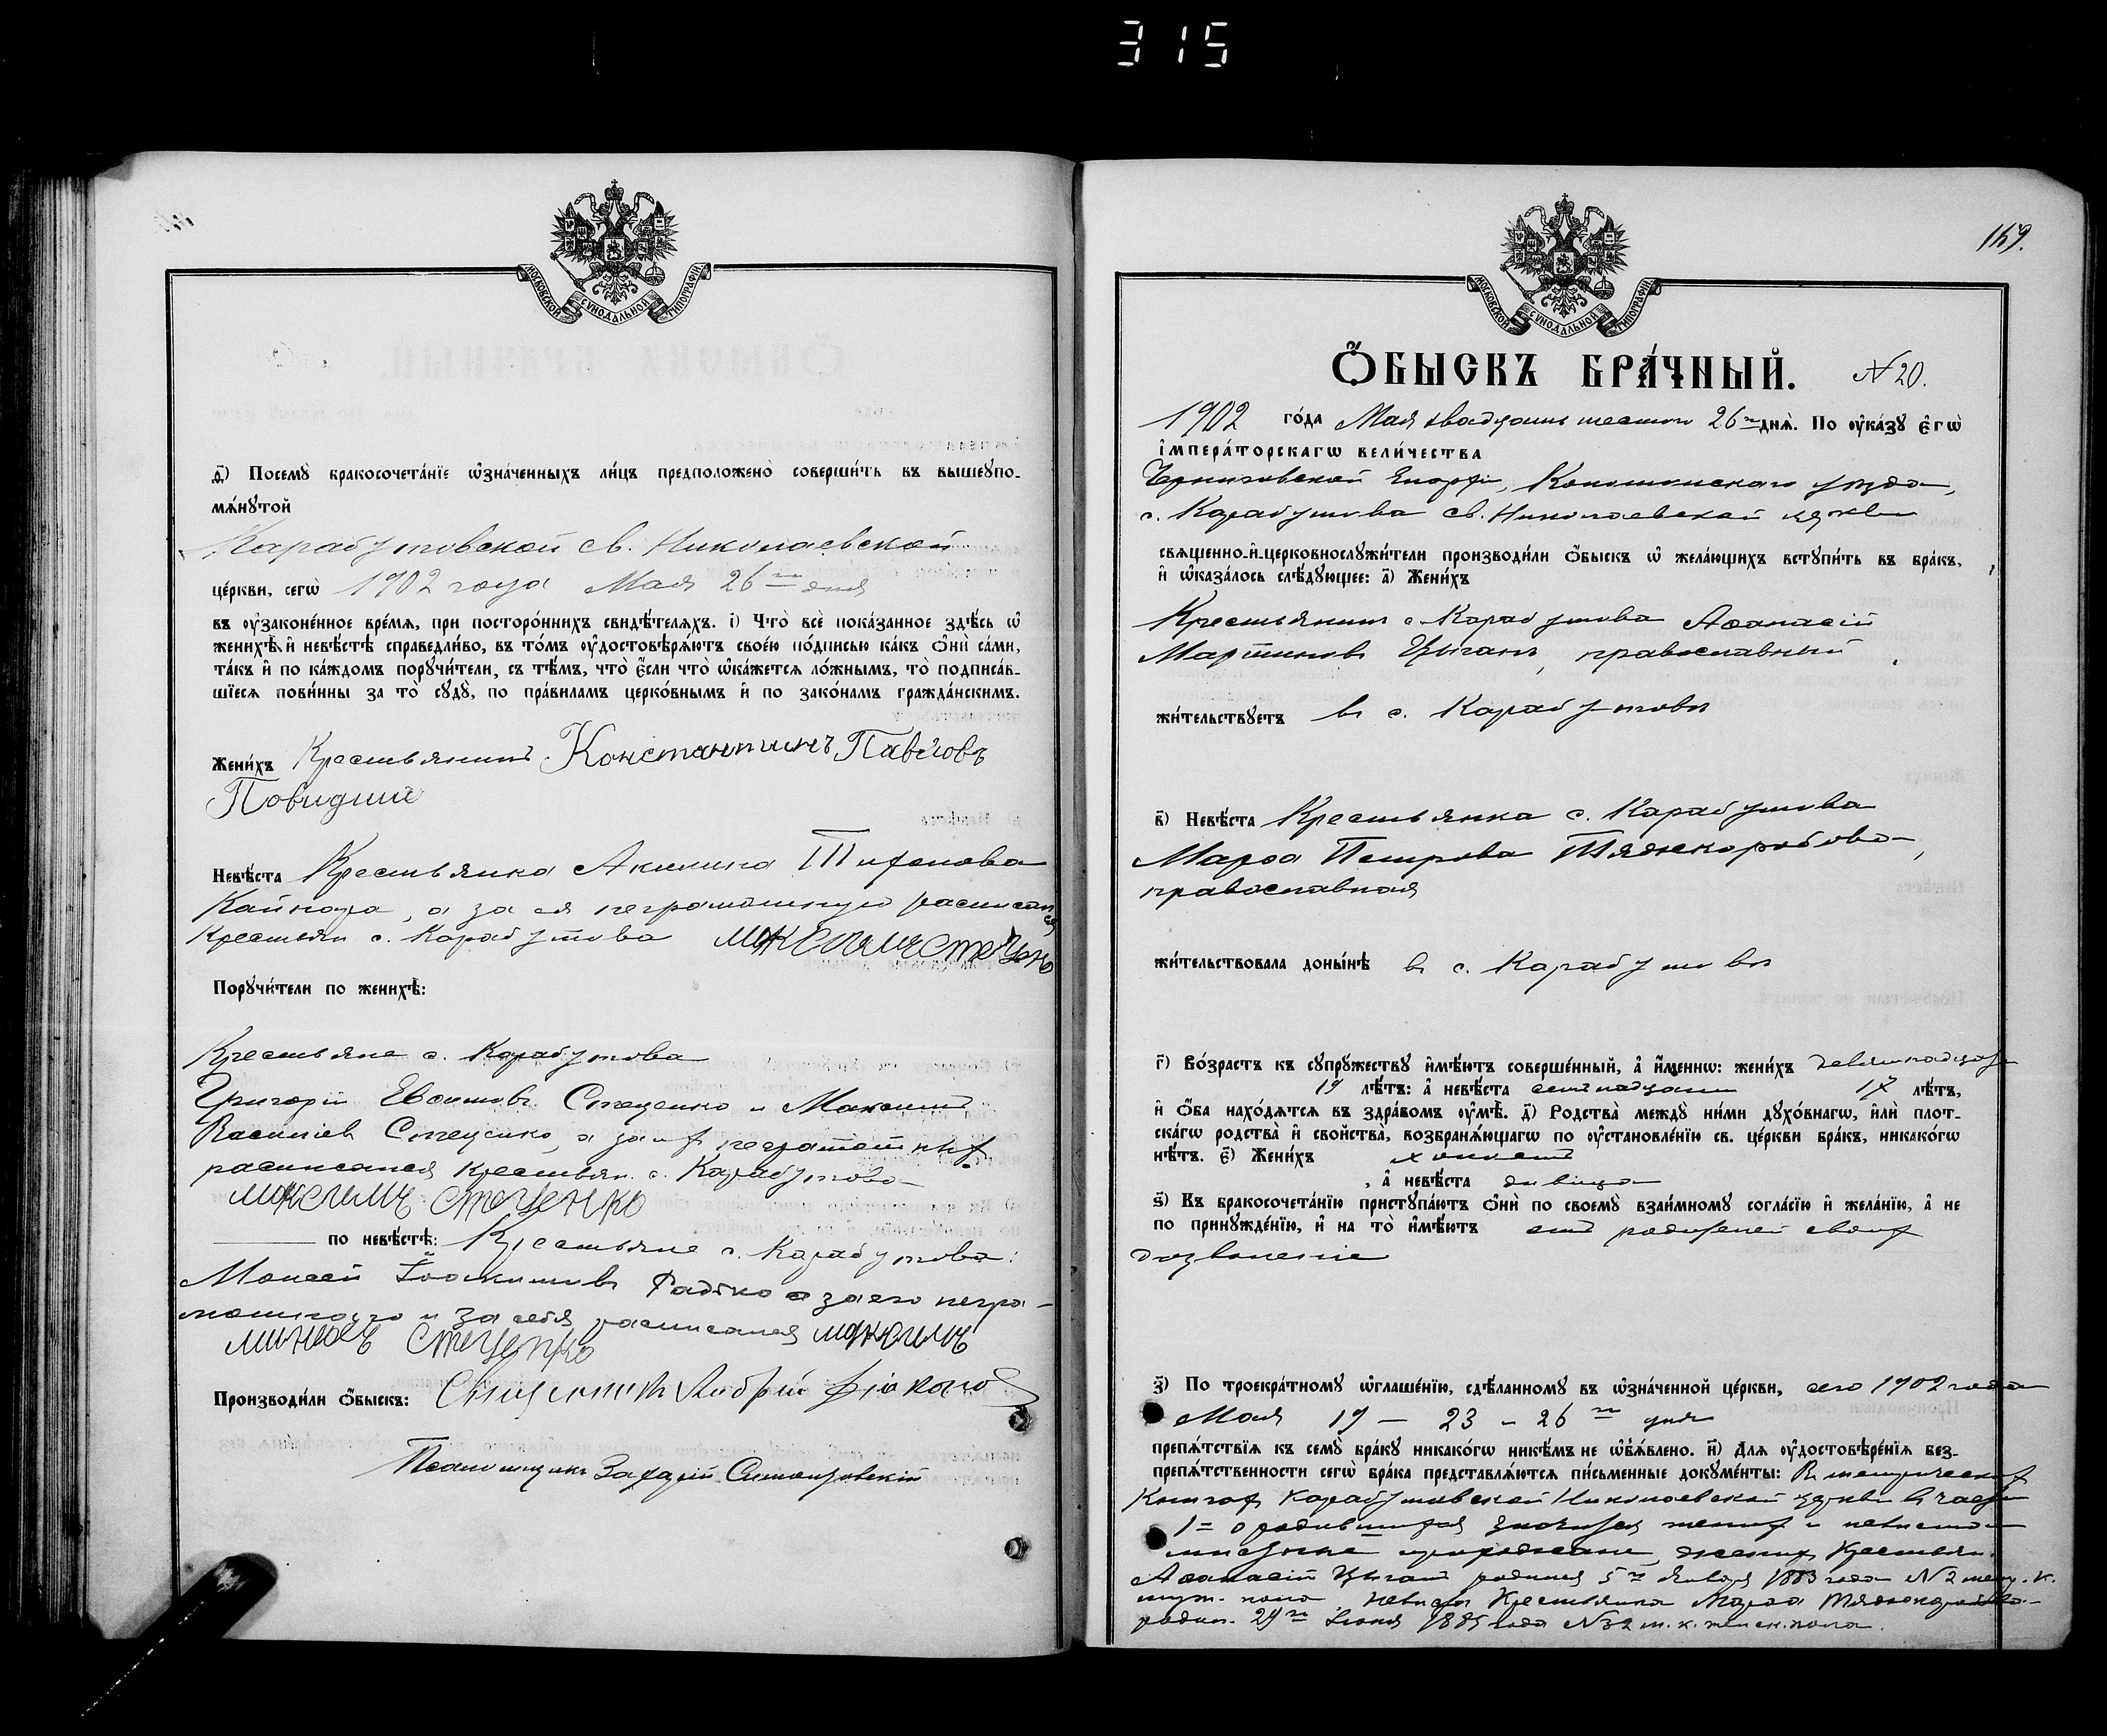 315
МОСКОВСКОЙ СУНОДАЛЬНОЙ ТИПОГРАФІИ
д҃) Посемꙋ бракосочета́нїе ѡ҆зна́ченныхъ ли́цъ предположено̀ соверши́ть въ вышеꙋпо-
мѧ́нꙋтой
Карабутовской св. Николаевской
це́ркви, сегѡ̀ 1902 года Мая 26го дня
въ ᲂу҆законе́нное вре́мѧ, при посторо́ннихъ свидѣ́телѧхъ. і҃) Что̀ всѐ пока́занное здѣ́сь ѡ҆
женихѣ̀ и҆ невѣ́стѣ справедли́во, въ то́мъ ᲂу҆достовѣрѧ́ютъ свое́ю по́дписью ка́къ ѻ҆нѝ са́ми,
та́къ и҆ по ка́ждомъ порꙋчи́тели, съ тѣ́мъ, что̀ є҆́сли что̀ ѡ҆ка́жетсѧ ло́жнымъ, то̀ подписа́в-
шїесѧ пови́нны за то̀ сꙋдꙋ̀, по пра́виламъ церко́внымъ и҆ по зако́намъ гражда́нскимъ.
Жени́хъ Крестьянинъ Константинъ Павловъ
Невѣ́ста Крестьянка Акилина
а за ея неграмотную расписался
Крестьян. с. Карабутова максимъ стеценко
Порꙋчи́тели по женихѣ̀:
Крестьяне с. Карабутова
Григорій Стеценко и Максимъ
Василіев Стеценко, а за их неграмотных
расписался Крестьян. с. Карабутова
максимъ стеценко
по невѣ́стѣ: Крестьяне с. Карабутова:
Моисей Іоакимовъ Радько а за его негра-
мотнаго и за себя расписался максимъ
стеценко
Производи́ли ѻ҆́быскъ: Священникъ Андрій
Псаломщикъ Захарій
МОСКОВСКОЙ СУНОДАЛЬНОЙ ТИПОГРАФІИ
159.
Ѻ҆́БЫСКЪ БРА́ЧНЫЙ. № 20.
1902 го́да Мая двадцать шестого 26го днѧ̀. По ᲂу҆ка́зꙋ є҆гѡ̀
і҆мпера́торскагѡ вели́чества
Черниговской Епархіи, Конотопскаго уѣзда,
с. Карабутова св. Николаевской церкви
свѧще́нно-и҆-церковнослꙋжи́тели производи́ли ѻ҆́быскъ ѡ҆ жела́ющихъ встꙋпи́ть въ бра́къ,
и҆ ѡ҆каза́лось слѣ́дꙋющее: а҃) Жени́хъ
Крестьянинъ с. Карабутова Аѳанасій
Мартиновъ Цыганъ, православный
жи́тельствꙋетъ въ с. Карабутовѣ
в҃) Невѣ́ста Крестьянка с. Карабутова
Марѳа Петрова Тяжкоробова,
православная
жи́тельствовала доны́нѣ въ с. Карабутовѣ
г҃) Во́зрастъ къ сꙋпрꙋ́жествꙋ и҆мѣ́ютъ соверше́нный, а҆ и҆́меннѡ: жени́хъ девятнадцать
19 лѣ́тъ: а҆ невѣ́ста семнадцать 17 лѣ́тъ,
и҆ ѻ҆́ба нахо́дѧтсѧ въ здра́вомъ ᲂу҆мѣ̀. д҃) Родства̀ междꙋ ни́ми дꙋхо́внагѡ, и҆лѝ плот-
ска́гѡ родства̀ и҆ свойства̀, возбранѧ́ющагѡ по ᲂу҆становле́нїю св. це́ркви бра́къ, никако́гѡ
нѣ́тъ. є҃) Жени́хъ холостъ
, а҆ невѣ́ста дѣвица
ѕ҃) Къ бракосочета́нїю пристꙋпа́ютъ ѻ҆нѝ по своемꙋ̀ взаи́мномꙋ согла́сїю и҆ жела́нїю, а҆ не
по принꙋжде́нїю, и҆ на то̀ и҆мѣ́ютъ отъ родителей своихъ
дозволеніе
з҃) По троекра́тномꙋ ѡ҆глаше́нїю, сдѣ́ланномꙋ въ ѡ҆зна́ченной це́ркви, сего 1902 года
Мая 19 – 23 – 26го дня
препѧ́тствїѧ къ семꙋ̀ бра́кꙋ никако́гѡ никѣ́мъ не ѡ҆б̾ѧ́влено. и҃) Длѧ ᲂу҆достовѣре́нїѧ без-
препѧ́тственности сегѡ̀ бра́ка представлѧ́ютсѧ пи́сьменные докꙋме́нты: Въ метрическихъ
Книгахъ Карабутовской Николаевской церкви въ части
1й о родившихся значится жених и невѣста
женихъ Крестьян.
Аѳанасій Цыганъ родился 5го Января 1883 года № 2 мет. к.
муж. пола, невѣста Крестьянка Марѳа Тяжкоробова
родил. 29го Іюня 1885 года № 32 м. к. женск. пола.